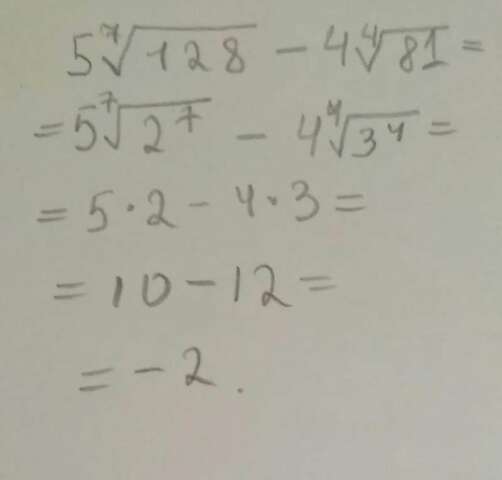 5⁷√128 − 4⁴√81 =
= 5⁷√2⁷ − 4⁴√3⁴ =
= 5·2 − 4·3 =
= 10 − 12 =
= −2.